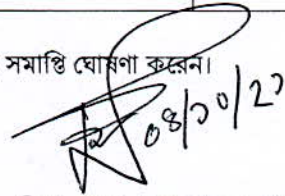 সমাপ্তি ঘোষণা করেন।
০৪/১০/২১